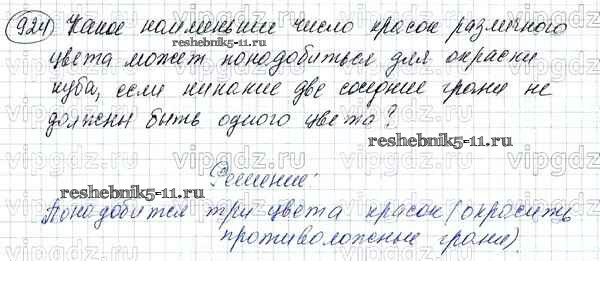 924 Какое наименьшее число красок различного
reshebnik5-11.ru
цвета может понадобиться для окраски
куба, если никакие две соседние грани не
должны быть одного цвета?
reshebnik5-11.ru
Решение:
reshebnik5-11.ru
Понадобится три цвета красок (окрасить
противоложные грани).
vipgdz.ru